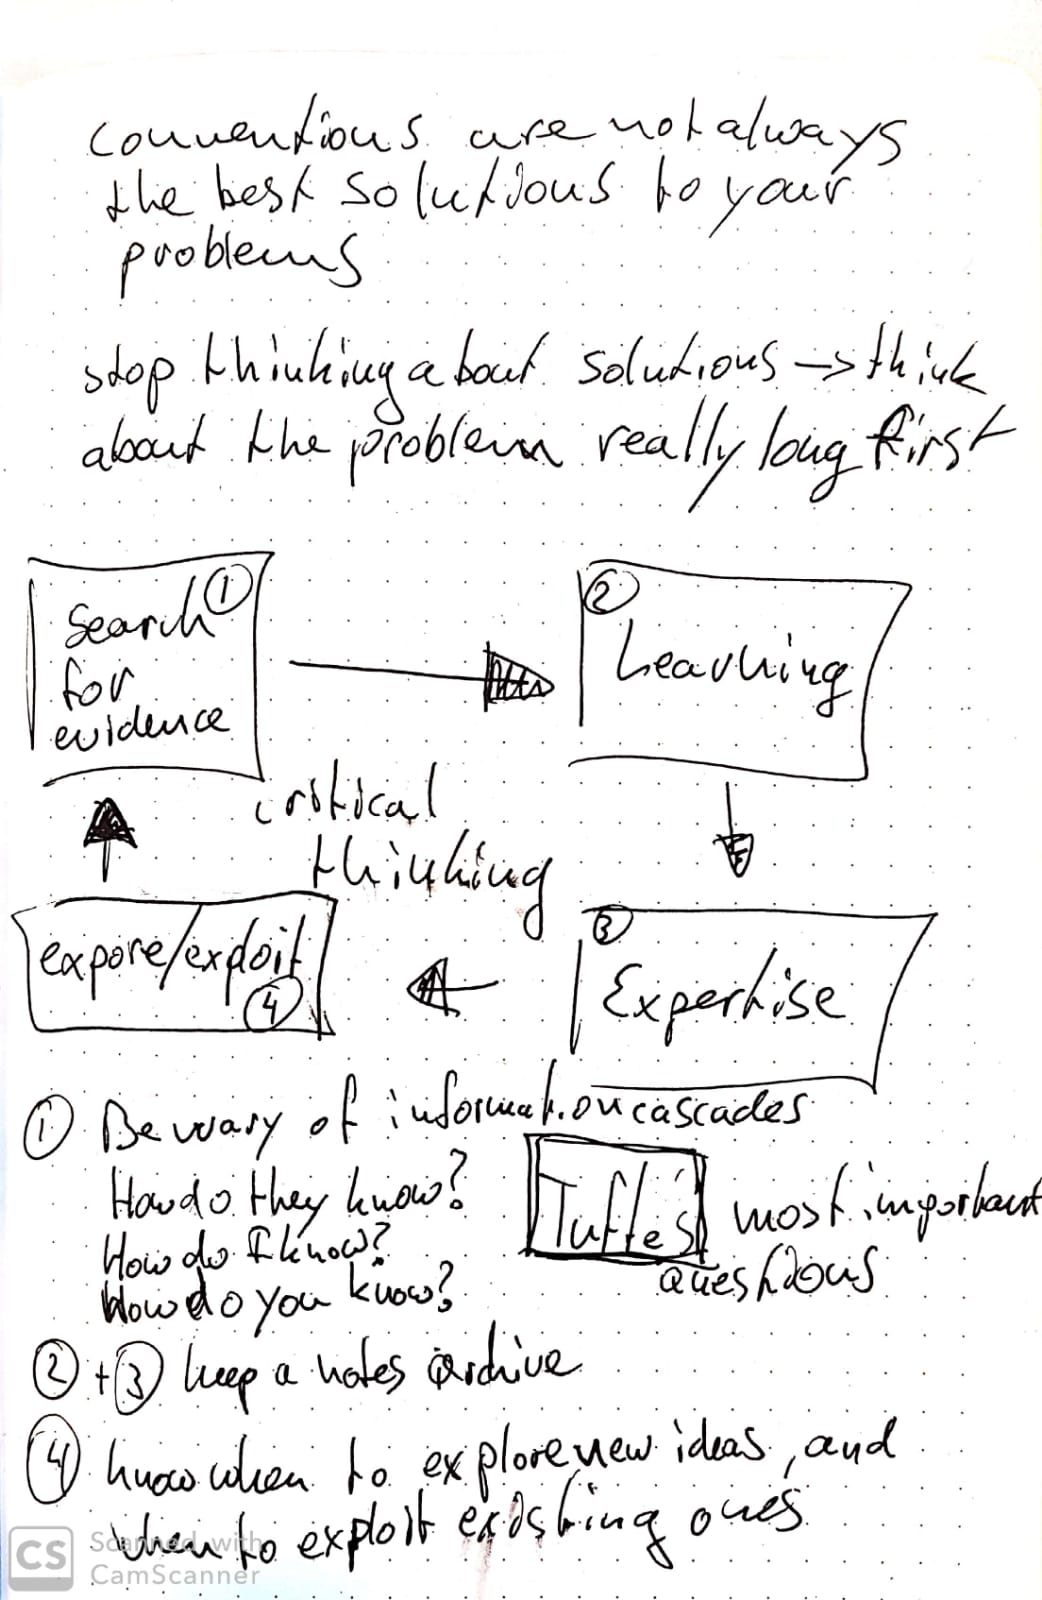 conventions are not always
the best solutions to your
problems
stop thinking about solutions -> think
about the problem really long first
① Search
for
evidence
② Learning
critical
thinking
expore/exploit
④
③ Expertise
① Be wary of information cascades
How do they know?
Tufte's most important
questions
How do I know?
How do you know?
② + ③ keep a notes archive
④ know when to explore new ideas, and
when to exploit existing ones
CS Scanned with
CamScanner